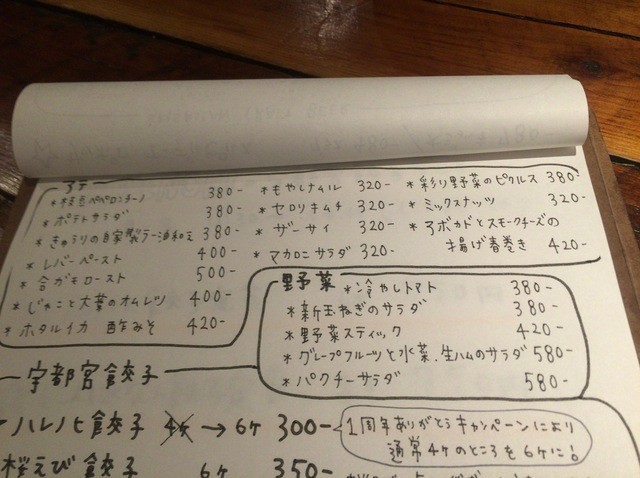 *枝豆ペペロンチーノ 380-
*ポテトサラダ 380-
*きゅうりの自家製ラー油和え 380-
*レバーペースト 400-
*合ガモロースト 500-
*じゃこと大葉のオムレツ 400-
*ホタルイカ 酢みそ 420-
*もやしナムル 320-
*セロリキムチ 320-
*ザーサイ 320-
*マカロニサラダ 320-
*彩り野菜のピクルス 380-
*ミックスナッツ 320-
*アボカドとスモークチーズの
揚げ春巻き 420-
野菜 *冷やしトマト 380-
*新玉ねぎのサラダ 380-
*野菜スティック 420-
*グレープフルーツと水菜、生ハムのサラダ 580-
*パクチーサラダ 580-
宇都宮餃子
ハレノヒ餃子 4ヶ→6ヶ 300-
1周年ありがとうキャンペーンにより
通常4ヶのところを6ヶに!
桜えび餃子 6ヶ 350-